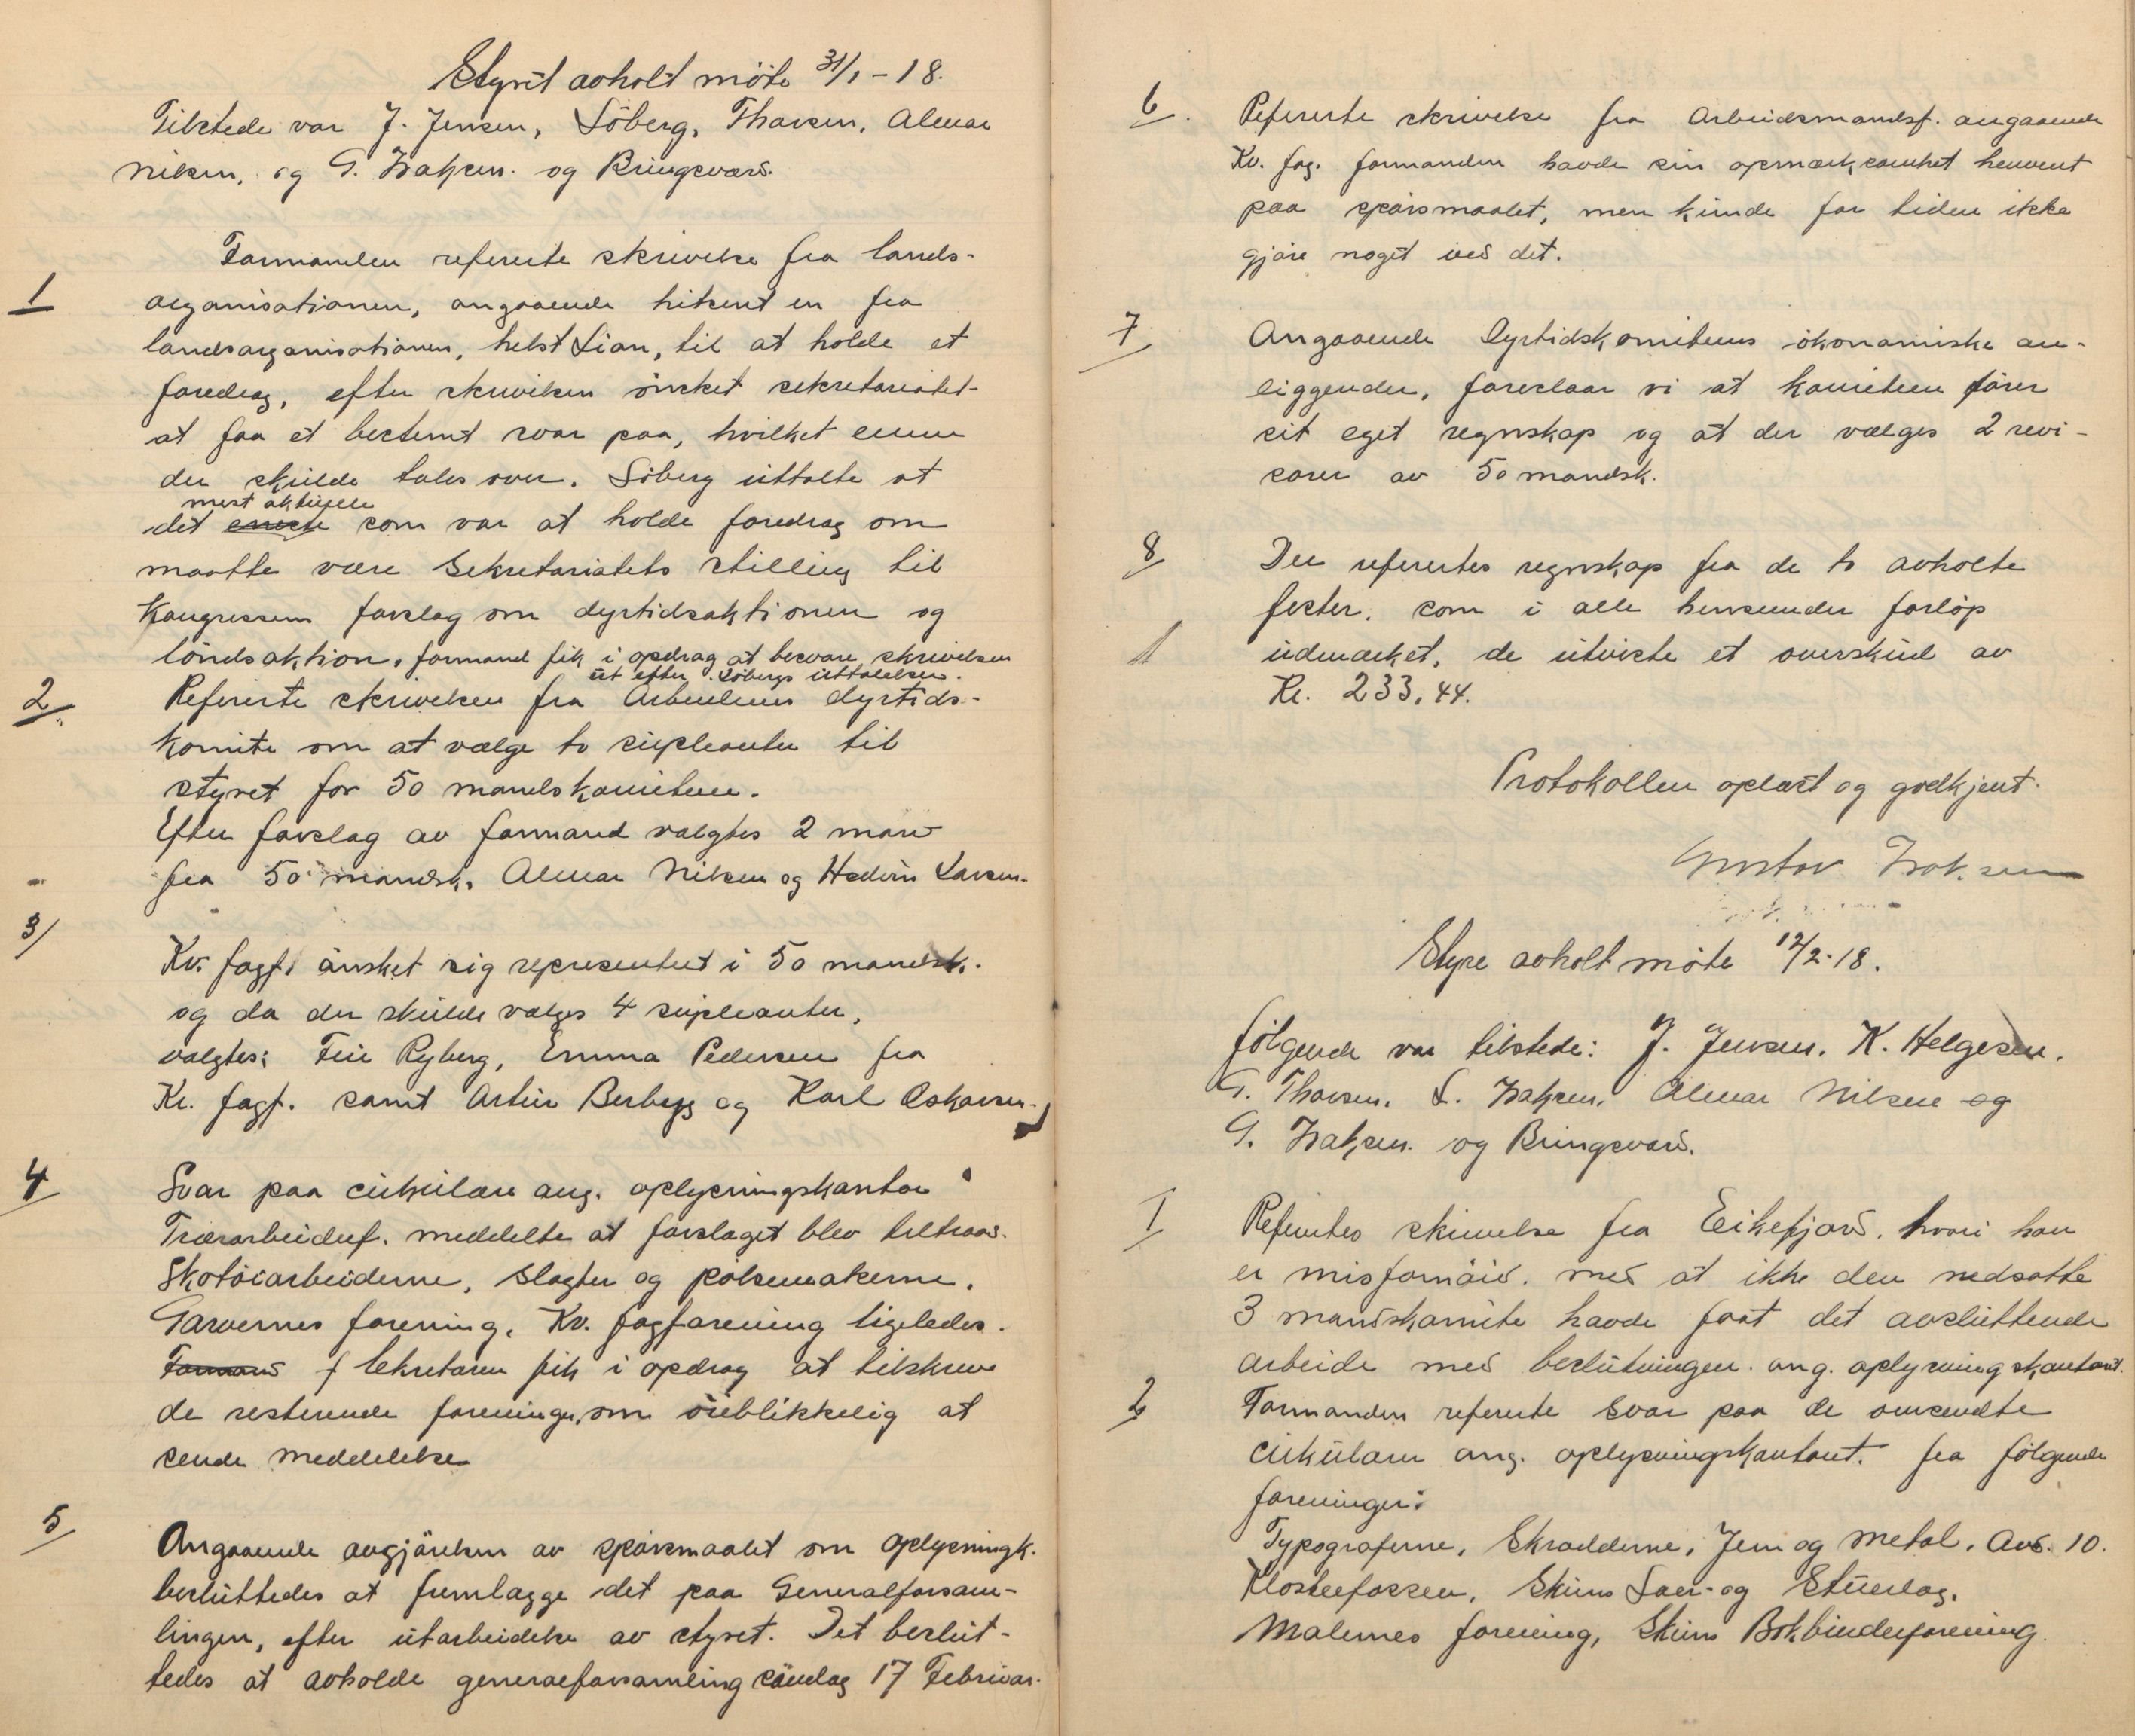 Styret avholt möte 31/1 - 18.
Tilstede var J. Jensen, Söberg, Thorsen, Almar
Nilsen, og G. Isaksen. og Bringsværd.
Formanden refererte skrivelse fra lands-
1 organisationen, angaaende hitsent en fra
landsorganisationen, helst Lian, til at holde et
foredrag, efter skrivelsen önsket sekretariatet
at faa et bestemt svar paa, hvilket emne
der skulde tales over. Söberg uttalte at
mest aktuelle
det eneste som var at holde foredrag om
maatte være Sekretariatets stilling til
Kongressens forslag om dyrtidsaktionen og
löndsaktion, formand fik i opdrag at besvare skrivelsen
ut efter Söbergs uttalelser.
2 Refererte skrivelsen fra Arbeidernes dyrtids-
komite om at vælge to supleanter til
styret for 50 mandskomiteen.
Efter forslag av formand valgtes 2 man
fra 50 mandsk. Almar Nilsen og Hedvin Larsen.
3/
Kv. fagf. önsket sig representert i 50 mandsk.
og da der skulde vælges 4 supleanter,
valgtes: Fru Ryberg, Emma Pedersen fra
Kv. fagf. samt Artur Berberg og Karl Oskarsen.
4 Svar paa cirkulære ang. oplysningskontor
Træarbeiderf. meddelte at forslaget blev tiltraad.
Skotöiarbeiderne, Slagter og pölsemakerne,
Garvernes forening, Kv. fagforening ligeledes.
Formand f Sekretæren fik i opdrag at tilskrive
de resterende foreninger, om öieblikkelig at
sende meddelelse
5
Angaaende avgjörelsen av spörsmaalet om oplysningk.
besluttedes at fremlægge det paa Generalforsam-
lingen, efter utarbeidelse av styret. Det beslut-
tedes at avholde generalforsamling söndag 17 Februar.
6. Refererte skrivelse fra Arbeidsmandsf. angaaende
Kv. fag. formanden havde sin opmærksomhet henvent
paa spörsmaalet, men kunde for tiden ikke
gjöre noget ved det.
7 Angaaende Dyrtidskomiteens ökonomiske an-
liggender, foreslaar vi at komiteen förer
sit eget regnskap og at der vælges 2 revi-
sorer av 50 mandsk.
8 Der refertes regnskap fra de to avholte
fester, som i alle henseender forlöp
udmerket, de utviste et overskud av
Kr. 233,44.
Protokollen oplæst og godkjent.
Gustav Isaksen
Styre avholt möte 12/2-18.
følgende var tilstede: J. Jensen. K. Helgesen.
T. Thorsen, L. Isaksen, Almar Nilsen og
G. Isaksen. og Bringsværd.
I Refertes skrivelse fra Eikefjord. hvori han
er misfornöid. med at ikke den nedsatte
3 mandskomite havde faat det avsluttende
arbeide med beslutningen. ang. oplysningskontort.
2 Formanden refererte svar paa de omsendte
cirkulærer ang. oplysningskontoret. fra fölgende
foreninger:
Typograferne, Skrædderne, Jern og Metal. Avd. 10.
Klosterfossen, Skiens Laer- og Stuerlag.
Malernes forening, Skiens Bokbinderforening.